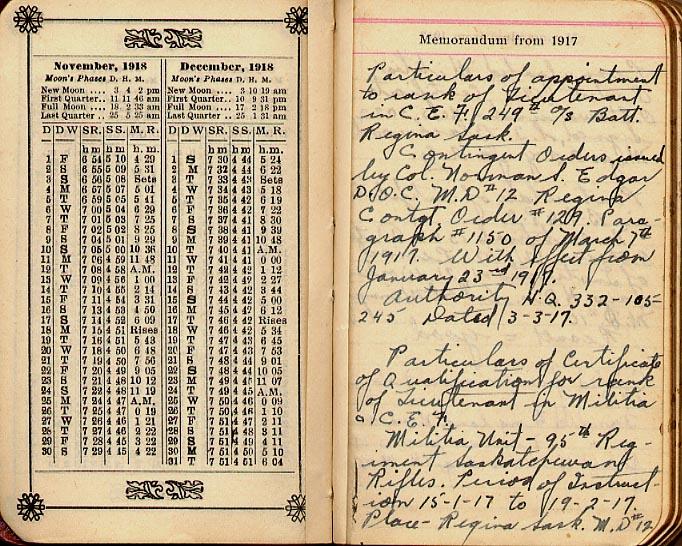 November, 1918
Moon's Phases D. H. M.
New Moon .... 3 4 2 pm
First Quarter.. 11 11 46 am
Full Moon .... 18 2 33 am
Last Quarter .. 25 5 25 am
D D W SR. S S. M. R.
h m h m h. m.
1 F 6 54 5 10 4 29
2 S 6 55 5 09 5 31
3 S 6 56 5 08 Sets
4 M 6 57 5 07 5 01
5 T 6 59 5 05 5 41
6 W 7 00 5 04 6 29
7 T 7 01 5 03 7 25
8 F 7 02 5 02 8 25
9 S 7 04 5 01 9 29
10 S 7 05 5 00 10 36
11 M 7 06 4 59 11 48
12 T 7 08 4 58 A.M.
13 W 7 09 4 56 1 00
14 T 7 10 4 55 2 14
15 F 7 11 4 54 3 31
16 S 7 13 4 53 4 50
17 S 7 14 4 52 6 09
18 M 7 15 4 51 Rises
19 T 7 16 4 51 5 43
20 W 7 18 4 50 6 48
21 T 7 19 4 50 7 56
22 F 7 20 4 49 9 05
23 S 7 21 4 48 10 12
24 S 7 22 4 48 11 19
25 M 7 24 4 47 A.M.
26 T 7 25 4 47 0 19
27 W 7 26 4 46 1 21
28 T 7 27 4 46 2 22
29 F 7 28 4 45 3 22
30 S 7 29 4 45 4 22
December, 1918
Moon's Phases D. H. M.
New Moon .... 3 10 19 am
First Quarter.. 10 9 31 pm
Full Moon .... 17 2 18 pm
Last Quarter .. 25 1 31 am
D. D W SR. S S. M. R.
h m h m h. m.
1 S 7 30 4 44 5 24
2 M 7 32 4 44 6 22
3 T 7 33 4 43 Sets
4 W 7 34 4 43 5 18
5 T 7 35 4 42 6 19
6 F 7 36 4 42 7 22
7 S 7 37 4 41 8 30
8 S 7 38 4 41 9 39
9 M 7 39 4 41 10 48
10 T 7 40 4 41 A.M.
11 W 7 41 4 41 0 00
12 T 7 42 4 42 1 12
13 F 7 42 4 42 2 27
14 S 7 43 4 42 3 44
15 S 7 44 4 42 5 00
16 M 7 45 4 42 6 12
17 T 7 46 4 42 Rises
18 W 7 46 4 42 5 34
19 T 7 47 4 43 6 45
20 F 7 47 4 43 7 53
21 S 7 48 4 44 9 01
22 S 7 48 4 44 10 05
23 M 7 49 4 45 11 07
24 T 7 49 4 45 A.M.
25 W 7 50 4 46 0 09
26 T 7 50 4 46 1 10
27 F 7 51 4 47 2 11
28 S 7 51 4 48 3 11
29 S 7 51 4 49 4 11
30 M 7 51 4 50 5 10
31 T 7 51 4 50 6 04
Memorandum from 1917
Particulars of appointment
to rank of Lieutenant
in C. E. F. 249th O/S Batt.
Regina Sask.
Contingent Orders issued
by Col. Norman S. Edgar
D.O.C. M.D #12 Regina
Contgt. Order #129. Para-
graph #1150 of March 7th
1917. With effect from
January 23rd 1917.
Authority H.Q. 332-105-
245 Dated 3-3-17.
Particulars of Certificate
of Qualification for rank
of Lieutenant in Militia
C. E. F.
Militia Unit - 95th Reg-
iment Saskatchewan
Rifles. Period of Instruct-
ion 15-1-17 to 19-2-17
Place - Regina Sask. M.D #12